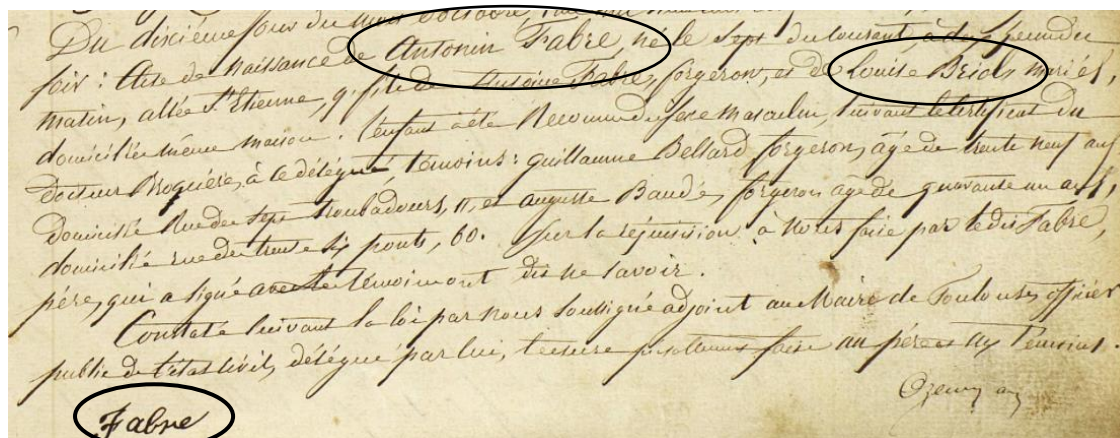 Du dixième jour du mois d'octobre
fois: Acte de naissance de Antonin Fabre, né le sept du courant, à deux heures du
matin, allée St Etienne, 9, fils de Antoine Fabre, forgeron, et de Louise Briol, mariés
domiciliés même maison. l'enfant a été Reconnu du sexe masculin, suivant le certificat du
docteur Broquère, à ce délégué, témoins: guillaume Bellard, forgeron, âgé de trente neuf ans
domicilié Rue des sept troubadours, 11, et auguste Baudé, forgeron âgé de quarante un ans,
domicilié rue des trente six ponts, 60. Sur la réquisition à Nous faite par ledit Fabre,
père, qui a signé les témoins ont dit ne savoir.
Constaté suivant la loi par nous soussigné adjoint au Maire de Toulouse, officier
public de l'état civil, délégué par lui, lecture faite au père et aux témoins.
Fabre